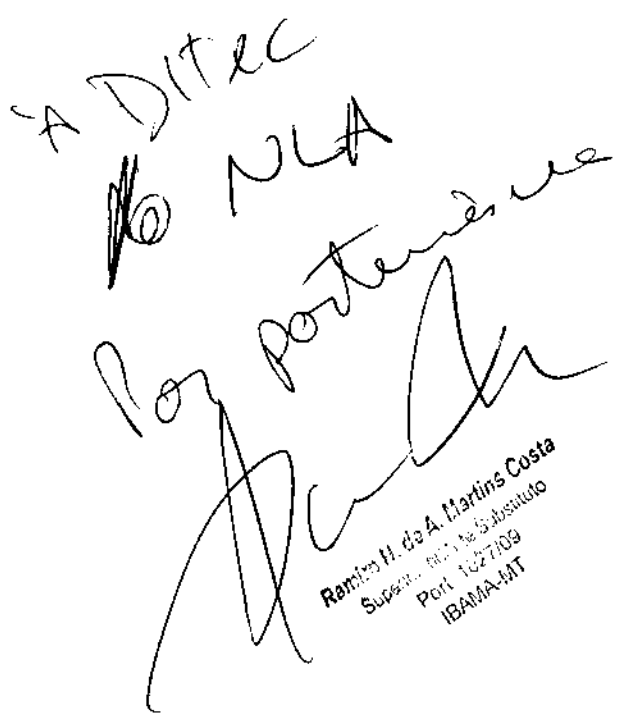 À DITEC
Ao NLA
Por pertinência
Ramiro H. de A. Martins Costa
Substituto
Port. 1027/09
IBAMA-MT